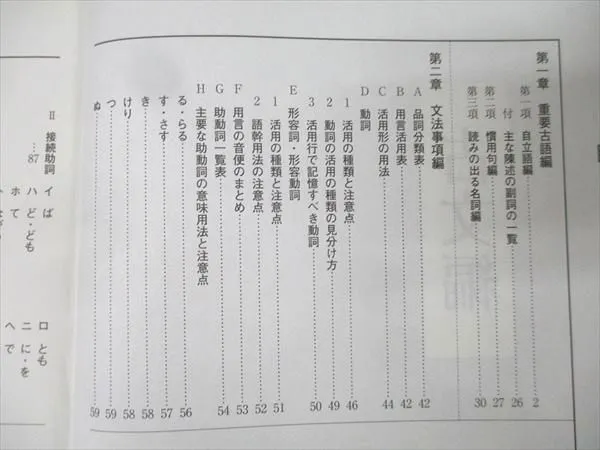 第一章　重要古語編
第一項　自立語編……2
付　主な陳述の副詞の一覧……26
第二項　慣用句編……27
第三項　読みの出る名詞編……30
第二章　文法事項編
A　品詞分類表……42
B　用言活用表……42
C　活用形の用法……44
D　動詞
1　活用の種類と注意点……46
2　動詞の活用の種類の見分け方……49
3　活用行で記憶すべき動詞……50
E　形容詞・形容動詞
1　活用の種類と注意点……51
2　語幹用法の注意点……52
F　用言の音便のまとめ……53
G　助動詞一覧表……54
H　主要な助動詞の意味用法と注意点
る・らる……56
す・さす……57
き……58
けり……58
つ……59
ぬ……59
Ⅱ　接続助詞…87
イ　ば
ロ　とも
ハ　ど・ども
ニ　に・を
ホ　て
ヘ　で